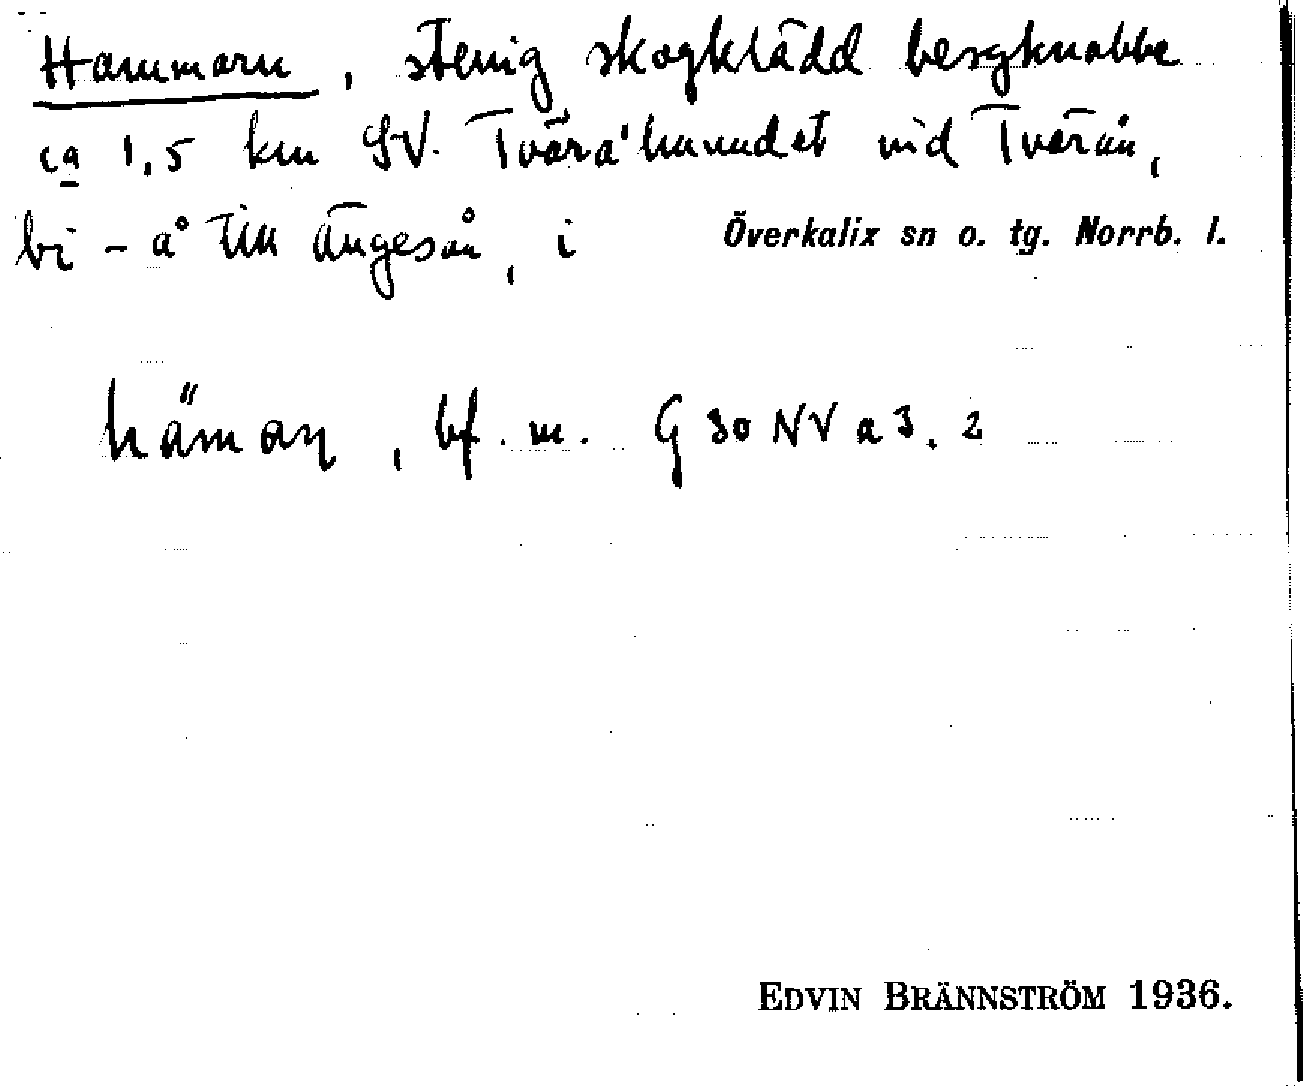 Hammarn, stenig skogklädd bergknabbe
ca 1,5 km SV. Tvärå'huvudet vid Tvärån,
bi-å till Ängesån, i Överkalix sn o. tg. Norrb. l.
häman, bf. m. G 30 NV a 3. 2
EDVIN BRÄNNSTRÖM 1936.